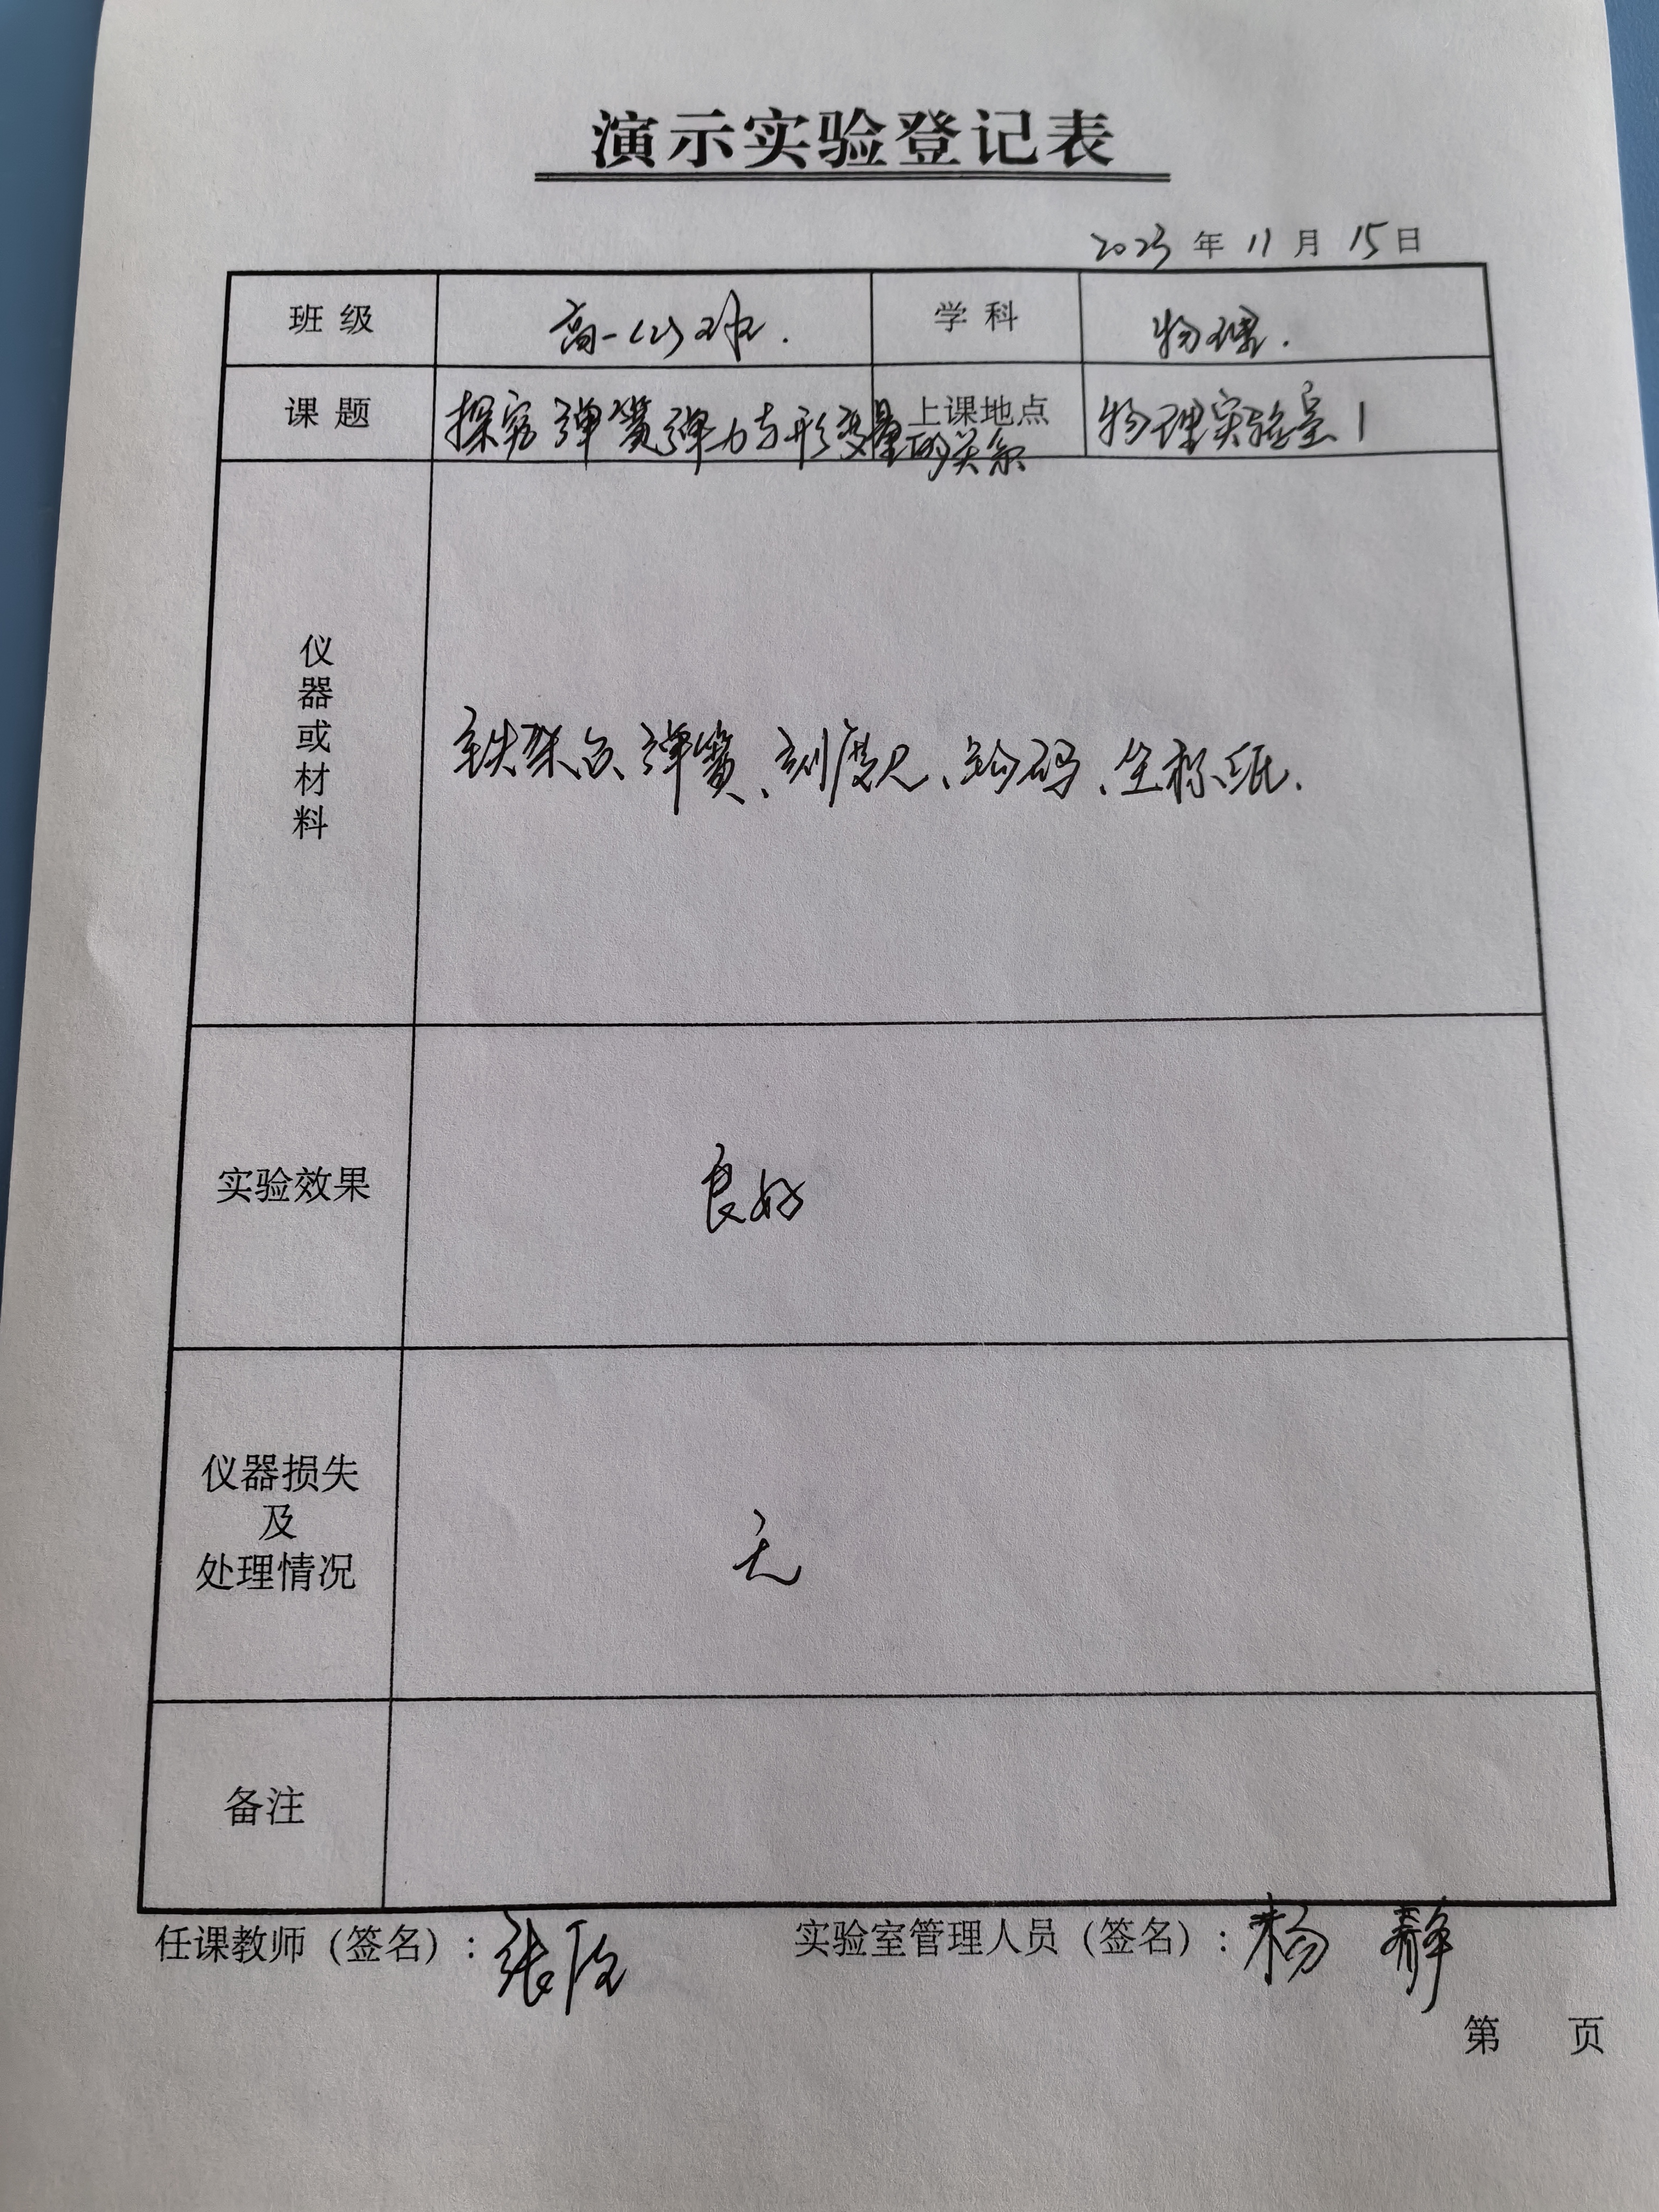 演示实验登记表
2023年11月15日
班级 高一(2)班. 学科 物理.
课题 探究弹簧弹力与形变量的关系 上课地点 物理实验室1
仪器或材料 铁架台、弹簧、刻度尺、钩码、坐标纸.
实验效果 良好
仪器损失
及
处理情况 无
备注
任课教师（签名）: 张 实验室管理人员（签名）: 杨静
第 页